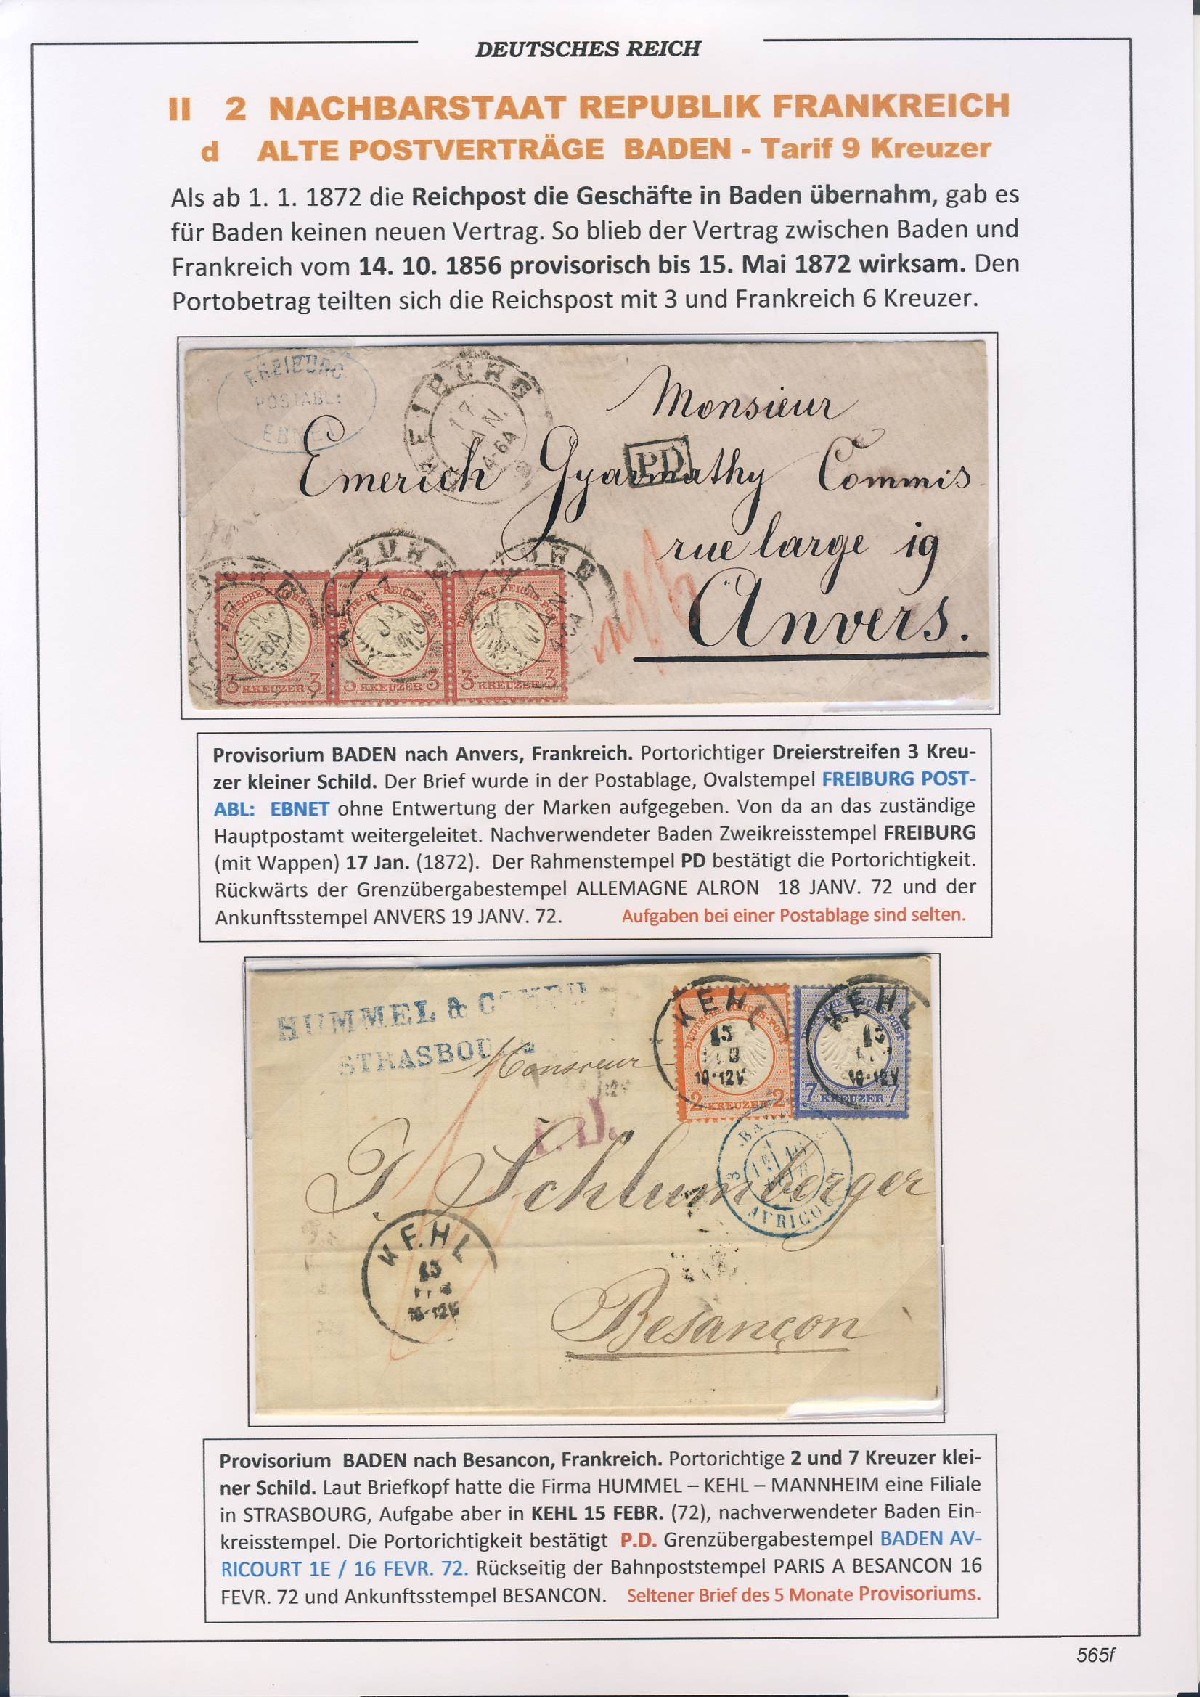 DEUTSCHES REICH
II 2 NACHBARSTAAT REPUBLIK FRANKREICH
d ALTE POSTVERTRÄGE BADEN - Tarif 9 Kreuzer
Als ab 1. 1. 1872 die Reichpost die Geschäfte in Baden übernahm, gab es
für Baden keinen neuen Vertrag. So blieb der Vertrag zwischen Baden und
Frankreich vom 14. 10. 1856 provisorisch bis 15. Mai 1872 wirksam. Den
Portobetrag teilten sich die Reichspost mit 3 und Frankreich 6 Kreuzer.
FREIBURG
POSTABL:
EBNET
FREIBURG
17 JAN.
Monsieur
Emerich Gyarmathy Commis
PD
rue large 19
Anvers.
3 KREUZER 3
3 KREUZER 3
3 KREUZER 3
Provisorium BADEN nach Anvers, Frankreich. Portorichtiger Dreierstreifen 3 Kreu-
zer kleiner Schild. Der Brief wurde in der Postablage, Ovalstempel FREIBURG POST-
ABL: EBNET ohne Entwertung der Marken aufgegeben. Von da an das zuständige
Hauptpostamt weitergeleitet. Nachverwendeter Baden Zweikreisstempel FREIBURG
(mit Wappen) 17 Jan. (1872). Der Rahmenstempel PD bestätigt die Portorichtigkeit.
Rückwärts der Grenzübergabestempel ALLEMAGNE ALRON 18 JANV. 72 und der
Ankunftsstempel ANVERS 19 JANV. 72. Aufgaben bei einer Postablage sind selten.
HUMMEL &
STRASBOU
KEHL
15
10-12V
KEHL
15
10-12V
2 KREUZER 2
7 KREUZER 7
Monsieur
P.D.
J. Schlumberger
AVRICOURT
KEHL
15
10-12V
Besançon
Provisorium BADEN nach Besancon, Frankreich. Portorichtige 2 und 7 Kreuzer klei-
ner Schild. Laut Briefkopf hatte die Firma HUMMEL – KEHL – MANNHEIM eine Filiale
in STRASBOURG, Aufgabe aber in KEHL 15 FEBR. (72), nachverwendeter Baden Ein-
kreisstempel. Die Portorichtigkeit bestätigt P.D. Grenzübergabestempel BADEN AV-
RICOURT 1E / 16 FEVR. 72. Rückseitig der Bahnpoststempel PARIS A BESANCON 16
FEVR. 72 und Ankunftsstempel BESANCON. Seltener Brief des 5 Monate Provisoriums.
565f